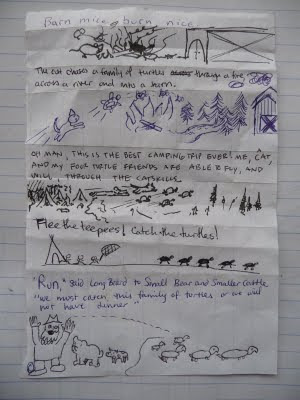 Barn mice burn nice.
The cat chases a family of turtles through a fire,
across a river and into a barn.
OH MAN, THIS IS THE BEST CAMPING TRIP EVER! ME, CAT,
AND MY FOUR TURTLE FRIENDS ARE ABLE 2 FLY, AND
WILL, THROUGH THE CATSKILLS.
Flee the teepers! Catch the turtles!
"Run," said Long Beard to Small Bear and Smaller Cattle
"we must catch this family of turtles, or we will
not have dinner."